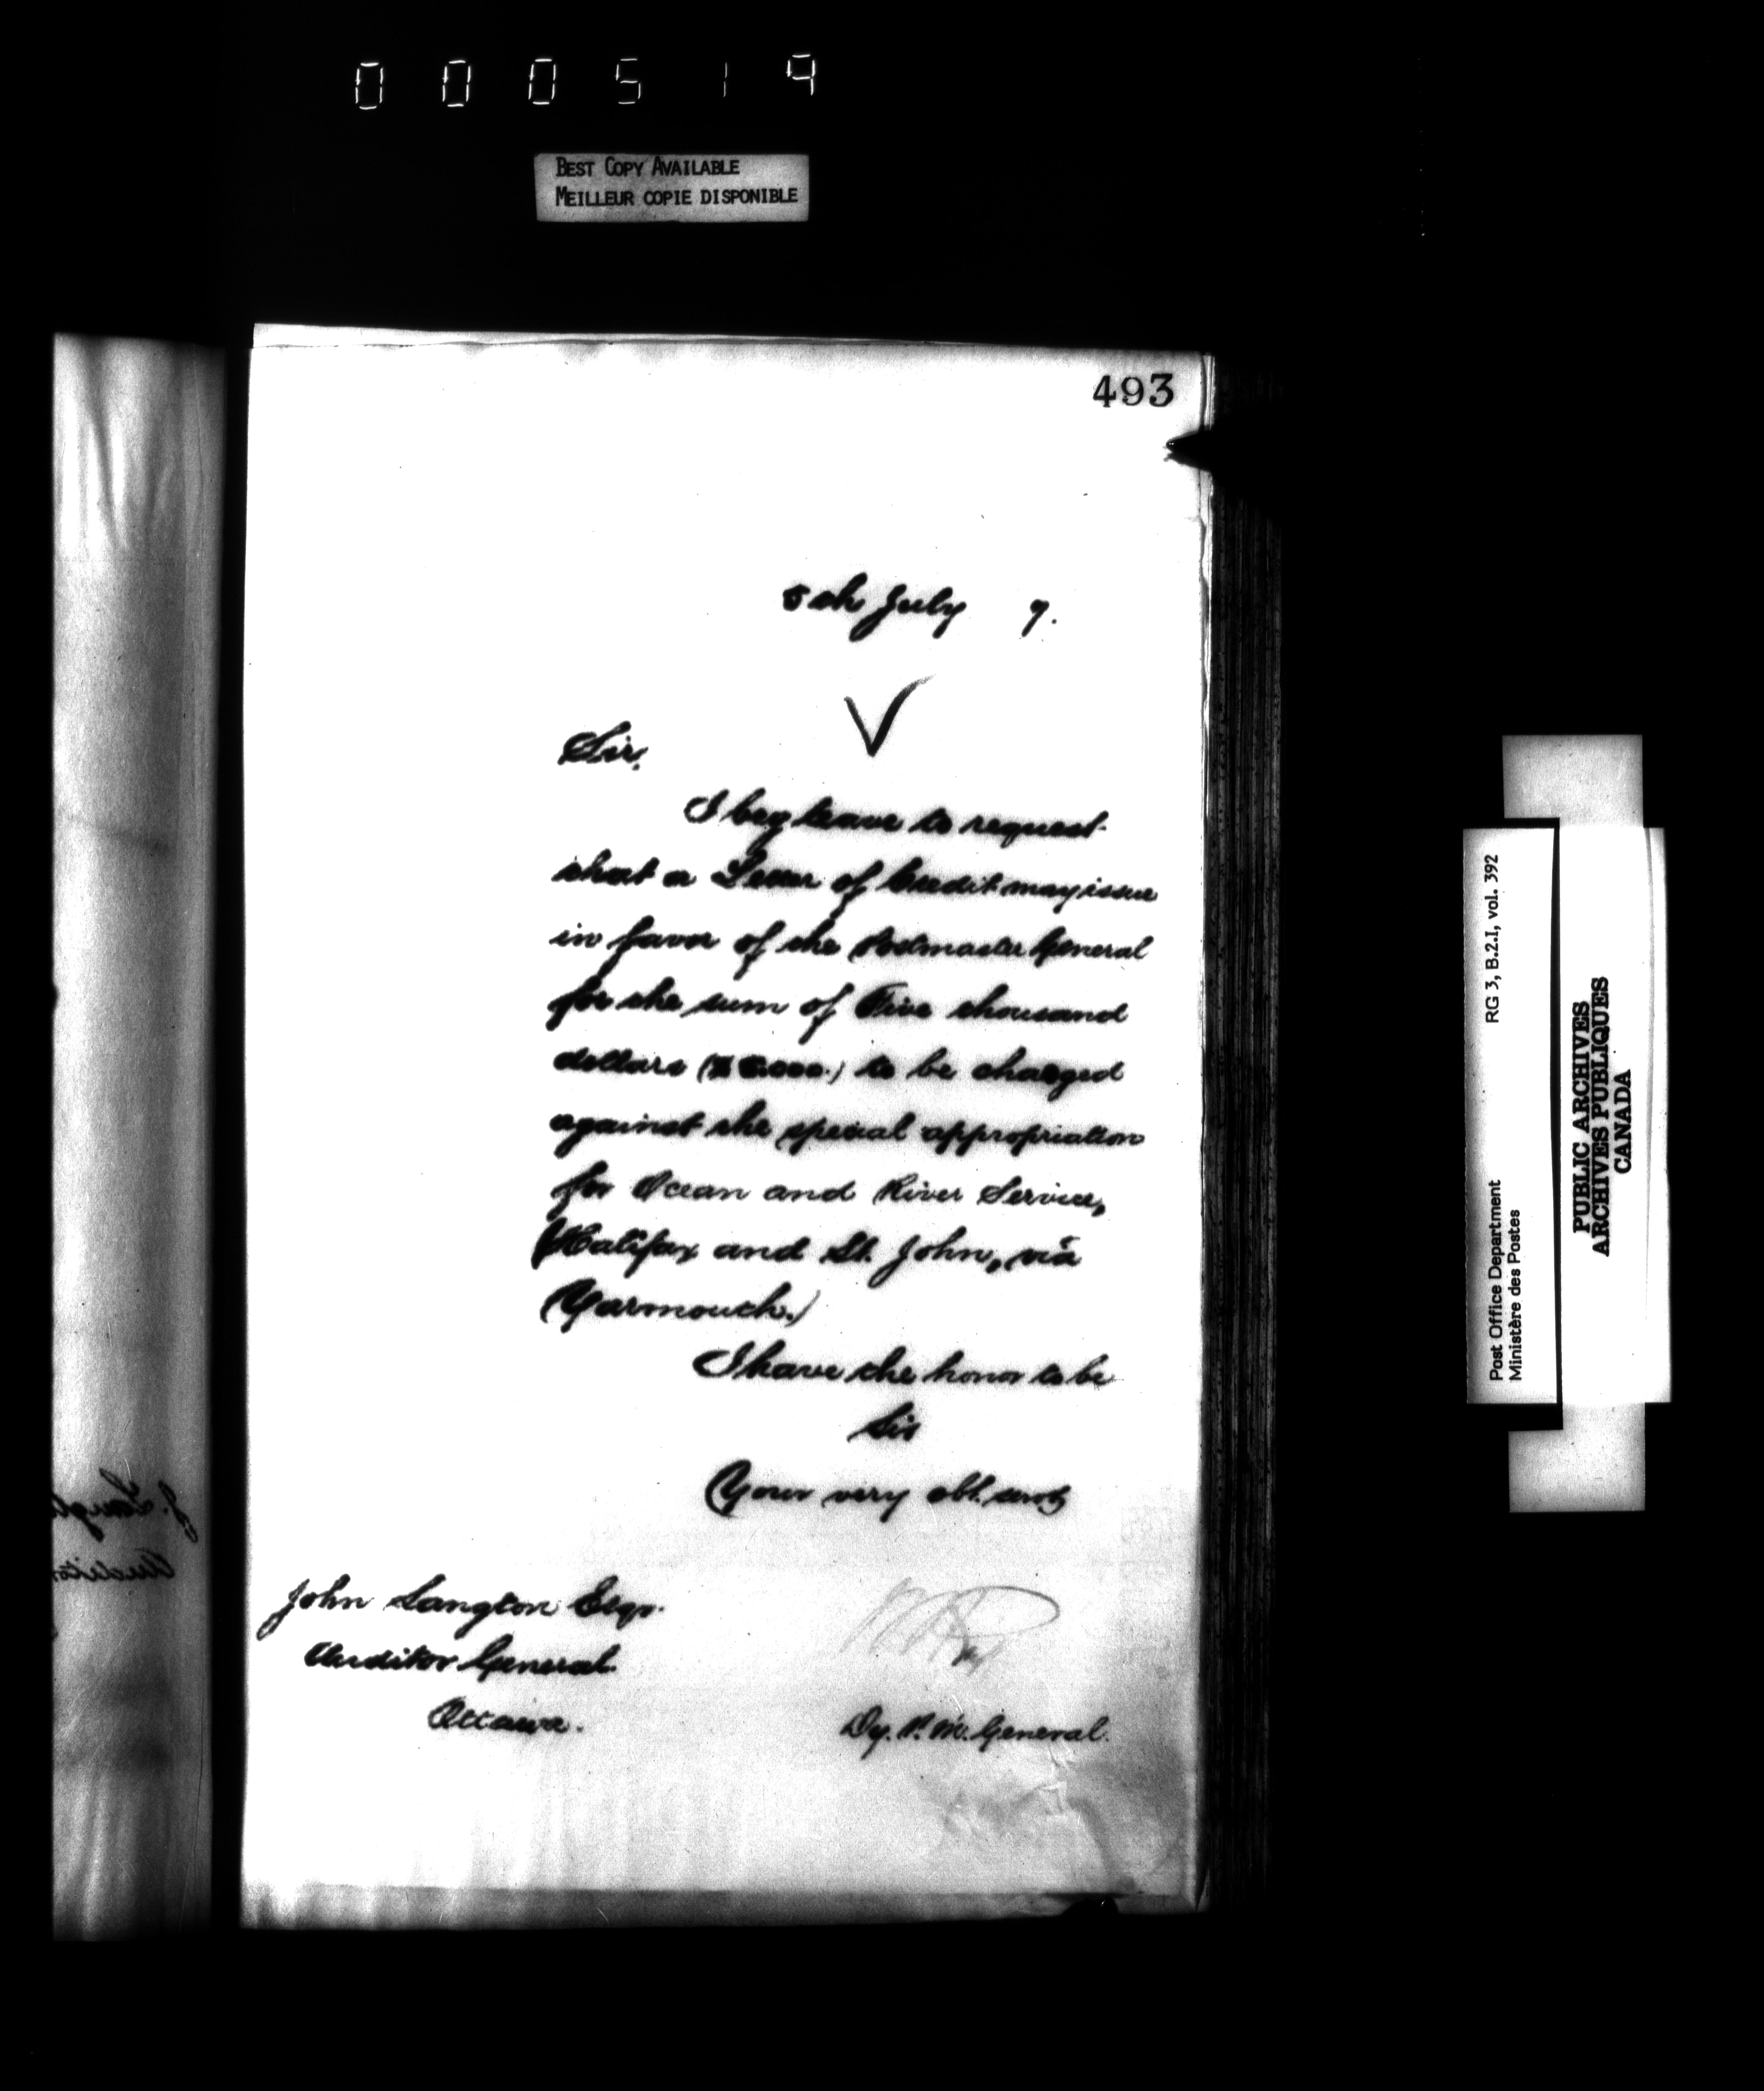 000519
BEST COPY AVAILABLE
MEILLEUR COPIE DISPONIBLE
493
5th July 7.
Sir,
I beg leave to request
that a Letter of Credit may issue
in favor of the Postmaster General
for the sum of Five thousand
dollars ($5.000.) to be charged
against the special appropriation
for Ocean and River Service,
(Halifax and St. John, via
(Yarmouth.)
I have the honor to be
Sir
Your very obt. servt
John Langton Esqr.
Auditor General.
Ottawa.
Dy. P. M. General.
J. Langt
Auditor
RG 3, B.2.I, vol. 392
Post Office Department
Ministère des Postes
PUBLIC ARCHIVES
ARCHIVES PUBLIQUES
CANADA